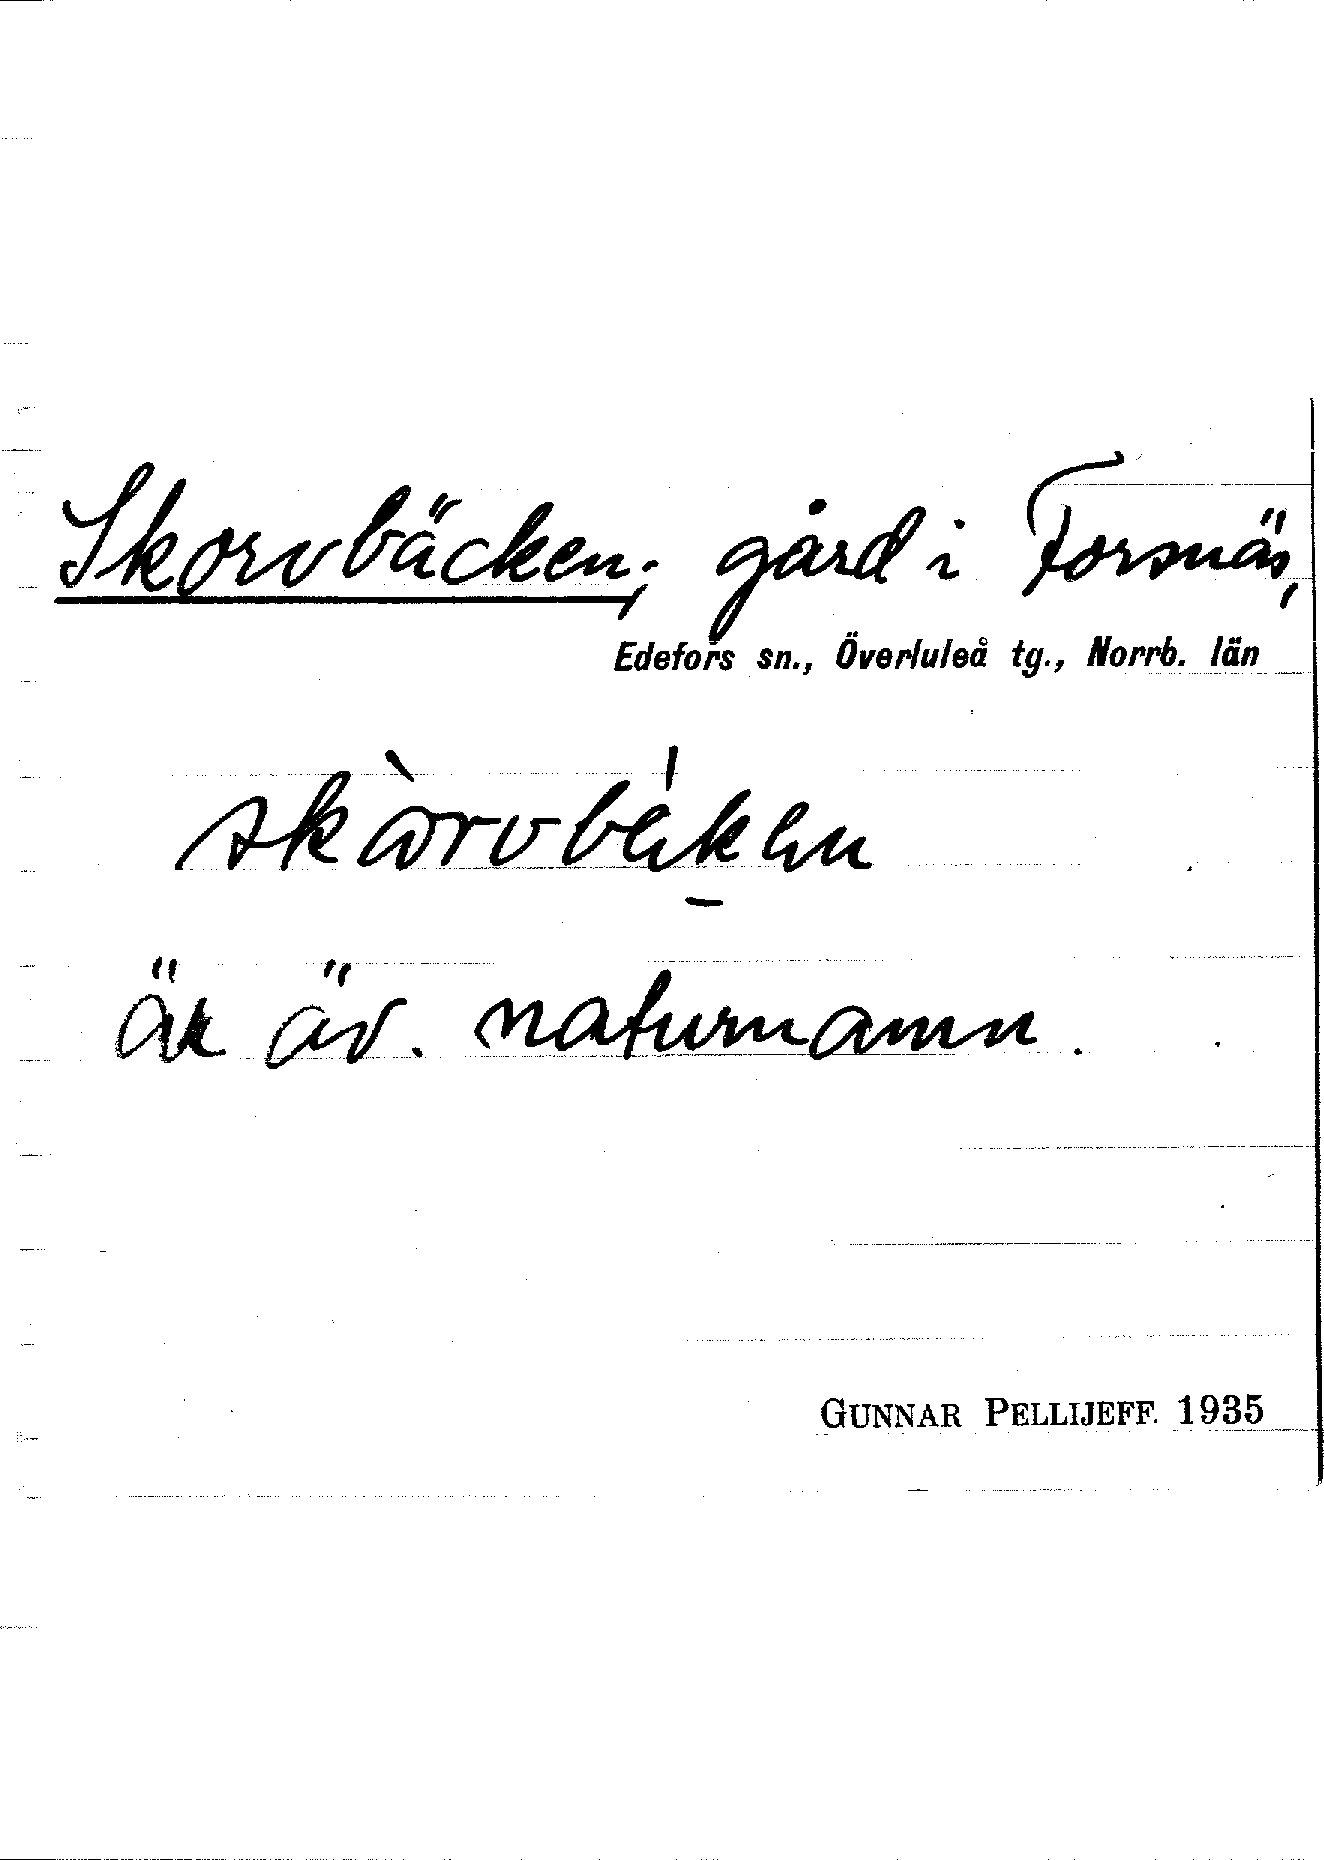 Skorvbäcken; gård i Forsnäs,
Edefors sn., Överluleå tg., Norrb. län
skòrvbæken
Är äv. naturnamn.
GUNNAR PELLIJEFF. 1935